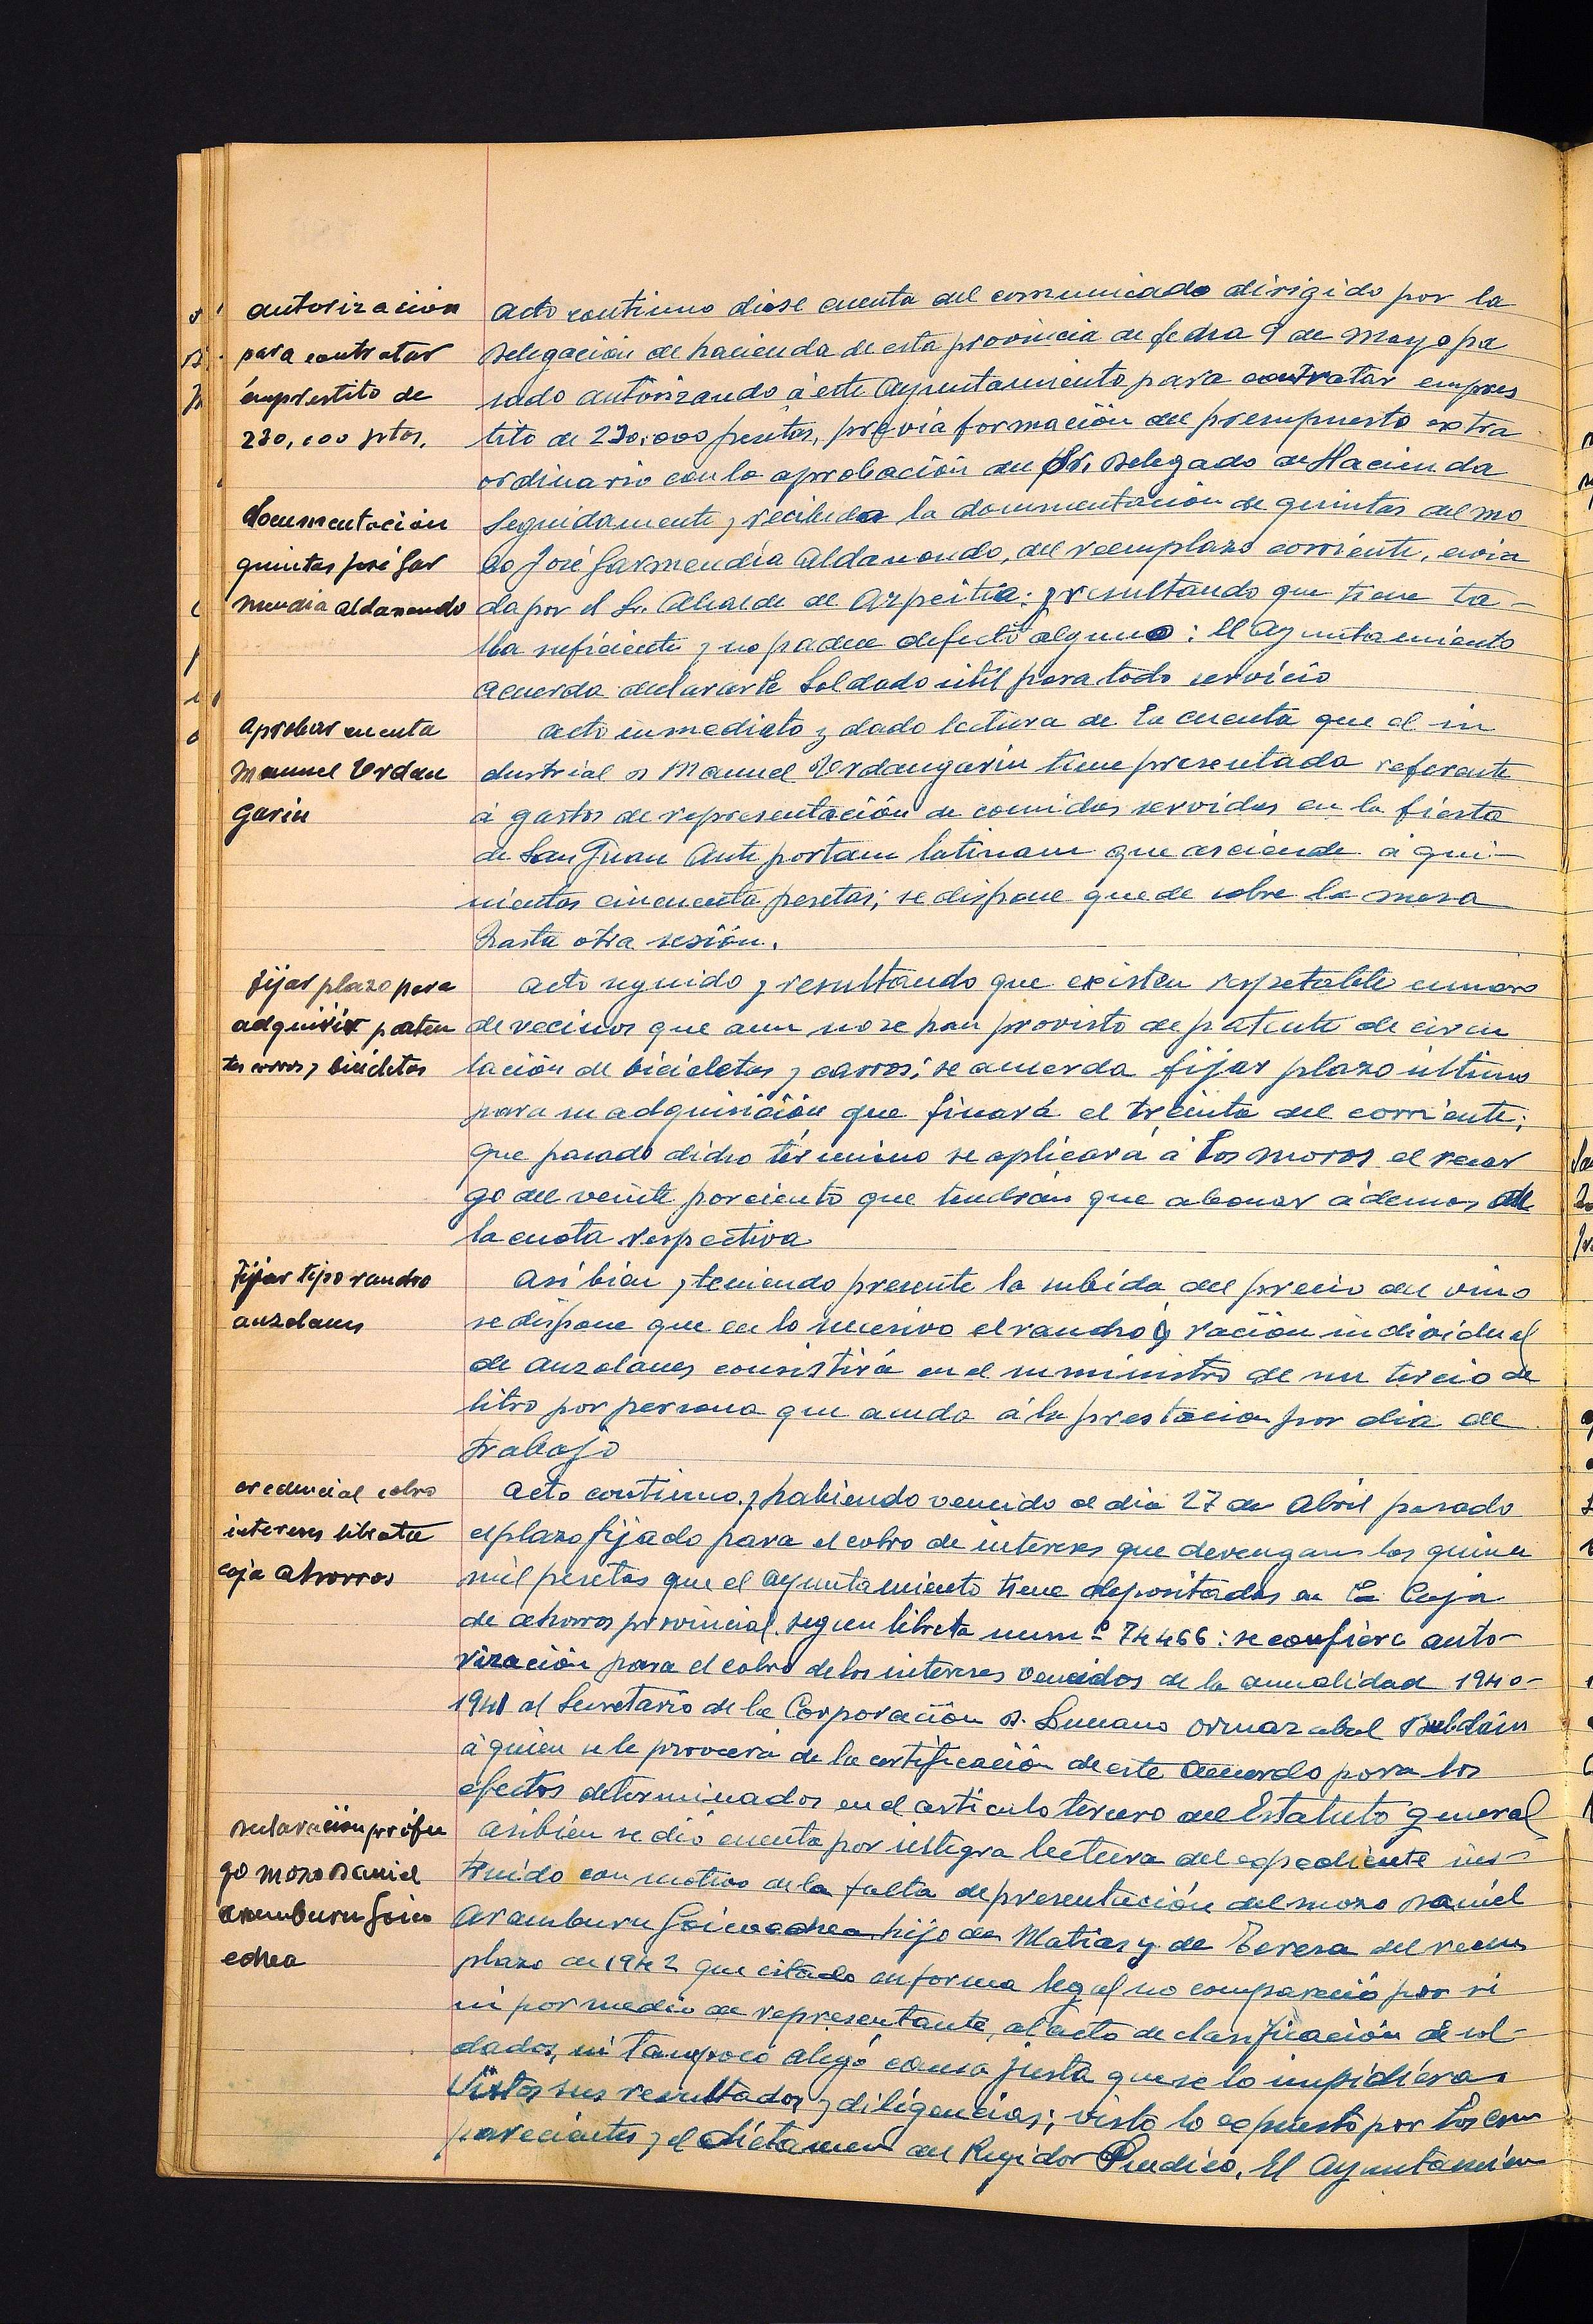 autorizacion
para contratar
émprestito de
230,000 ptas.
Acto continuo diose cuenta del comunicado dirigido por la
Delegación de hacienda de esta provincia de fecha 9 de Mayo pa
sado autorizando á este Ayuntamiento para contratar empres
tito de 230,000 pesetas, previa formación del presupuesto extra
ordinario con la aprobación del Sr. Delegado de Hacienda
Documentación
quintas José Gar
mendia Aldanondo
Seguidamente y recibida la documentación de quintas del mo
zo José Garmendia Aldanondo, del reemplazo corriente, envia
da por el Sr. Alcalde de Azpeitia: y resultando que tiene ta-
lla suficiente y no padece defecto alguno: El Ayuntamiento
acuerda declararle Soldado útil para todo servicio
Aprobar cuenta
Manuel Urdan
garin
Acto inmediato y dado lectura de la cuenta que el in
dustrial D Manuel Urdangarin tiene presentada referente
á gastos de representación de comidas servidas en la fiesta
de San Juan Ante portam latinam que asciende á qui-
nientas cincuenta pesetas; se dispone quede sobre la mesa
hasta otra sesión.
Fijar plazo para
adquirir paten
tes carros y bicicletas
Acto seguido y resultando que existen respetable numero
de vecinos que aun no se han provisto de patente de circu
lación de bicicletas y carros; se acuerda fijar plazo último
para su adquisición que finará el treinta del corriente;
que pasado dicho término se aplicará á los moros el recar
go del veinte por ciento que tendrán que abonar ádemas de
la cuota respectiva
Fijar tipo rancho
auzolanes
Asi bien y teniendo presente la subida del precio del vino
se dispone que en lo sucesivo el rancho ó ración individual
de auzolanes consistirá en el suministro de un tercio de
litro por persona que acuda á la prestacion por dia de
trabajo
credencial cobro
intereses libreta
caja ahorros
Acto continuo y habiendo vencido el dia 27 de Abril pasado
el plazo fijado para el cobro de intereses que devengan las quince
mil pesetas que el Ayuntamiento tiene depositadas en la Caja
de ahorros provincial, segun libreta numº 74466: se confiere auto-
rización para el cobro de los intereses vencidos de la anualidad 1940-
1941 al Secretario de la Corporación D. Luciano Ormazabal
á quien se le proveera de la certificación de este Acuerdo para los
efectos determinados en el articulo tercero del Estatuto general
Declaración prófu
go mozo Daniel
Aramburu Goico
echea
Asibien se dió cuenta por integra lectura del expediente ins-
truido con motivo de la falta de presentación del mozo Daniel
Aramburu Goicoechea hijo de Matias y de Teresa del reem
plazo de 1942 que citado en forma legal no compareció por si
ni por medio de representante, al acto de clasificación de sol-
dados, ni tampoco alegó causa justa que se lo impidiera
Vistos sus resultados y diligencias; visto lo expuesto por los com
parecientes y el dictamen del Regidor Sindico, El Ayuntamien